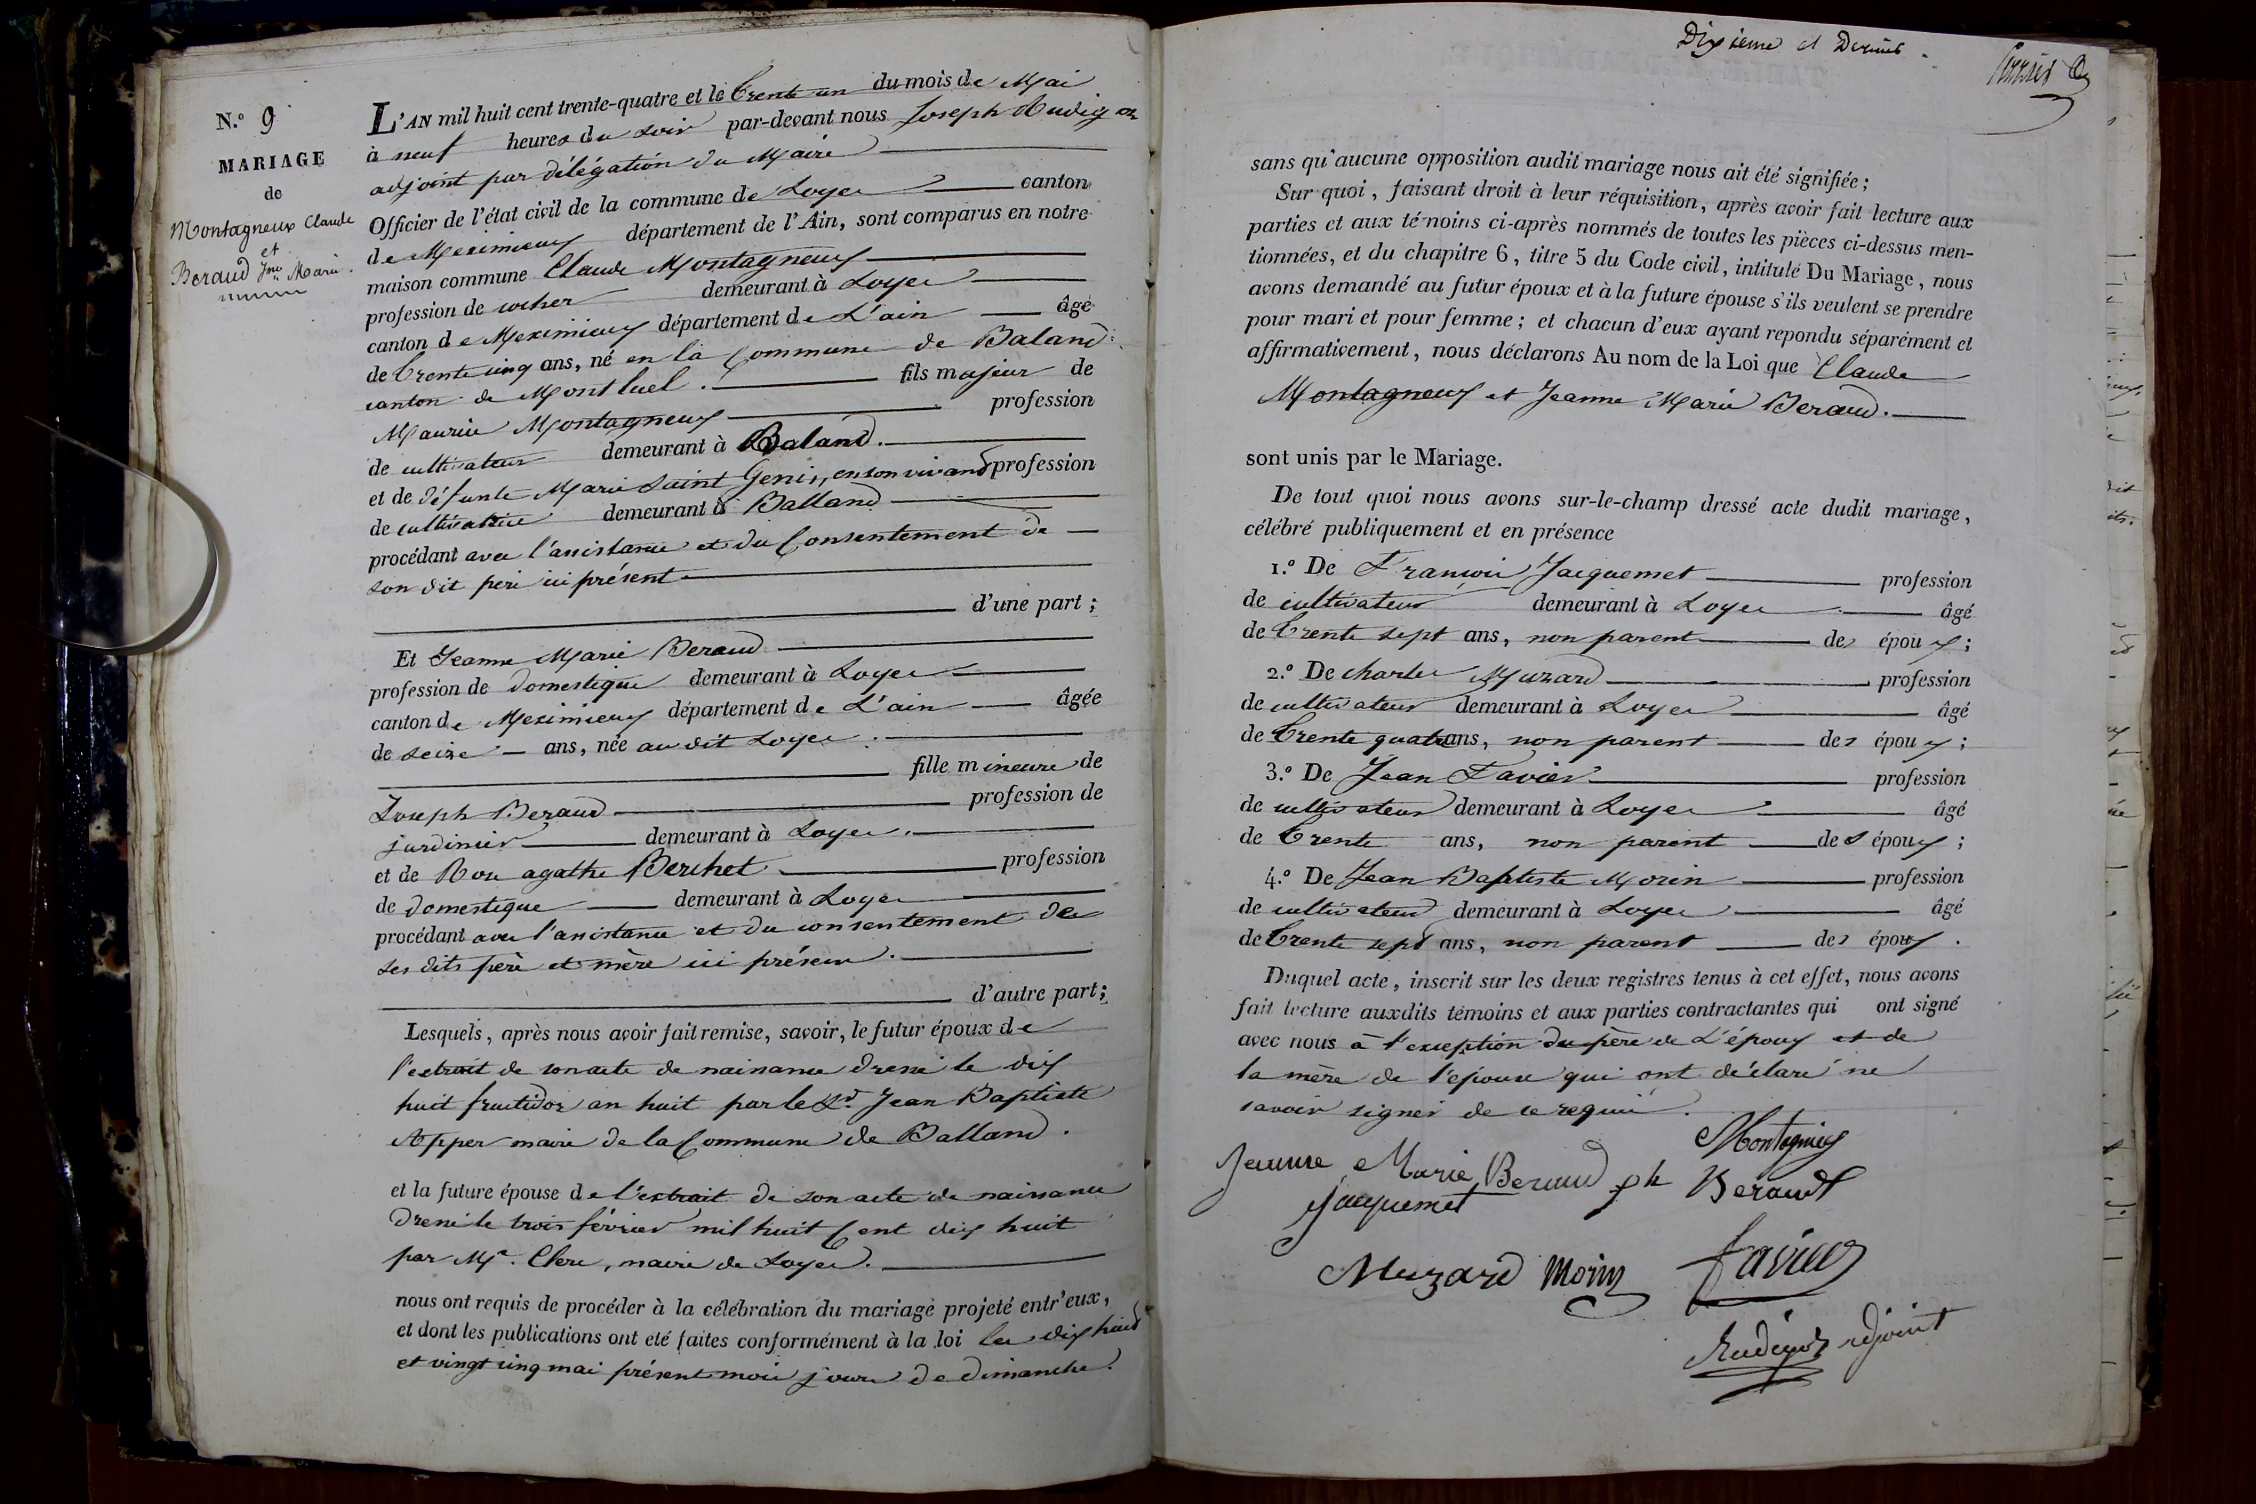 N.º 9
MARIAGE
de
Montagneux Claude
et
Beraud Jne Marie.
L'AN mil huit cent trente-quatre et le trente un du mois de Mai
à neuf heures du soir par-devant nous Joseph Rudigoz
adjoint par délégation du Maire
Officier de l'état civil de la commune de Loyes canton
de Meximieux département de l'Ain, sont comparus en notre
maison commune Claude Montagneux
profession de cocher demeurant à Loyes
canton de Meximieux département de L'ain âgé
de trente cinq ans, né en la Commune de Baland
canton de Montluel. fils majeur de
Maurice Montagneux profession
de cultivateur demeurant à Baland.
et de défunte Marie Saint Genis, en son vivant profession
de cultivatrice demeurant à Balland
procédant avec l'assistance et du Consentement de
son dit père ici présent
d'une part ;
Et Jeanne Marie Beraud
profession de domestique demeurant à Loyes
canton de Meximieux département de L'ain âgée
de seize ans, née au dit Loyes.
fille mineure de
Joseph Beraud profession de
jardinier demeurant à Loyes.
et de Rose agathe Berchet profession
de domestique demeurant à Loyes
procédant avec l'assistance et du consentement de
ses dits père et mère ici présens.
d'autre part ;
Lesquels, après nous avoir fait remise, savoir, le futur époux de
l'extrait de son acte de naissance dressé le dix
huit fructidor an huit par le Sr. Jean Baptiste
Apper maire de la Commune de Balland.
et la future épouse de l'extrait de son acte de naissance
dressé le trois février mil huit Cent dix huit
par Mr. Clerc, maire de Loyes.
nous ont requis de procéder à la célébration du mariage projeté entr'eux,
et dont les publications ont eté faites conformément à la loi les dix huit
et vingt cinq mai présent mois jours de dimanche.
Dixieme et Dernier
sans qu'aucune opposition audit mariage nous ait été signifiée ;
Sur quoi, faisant droit à leur réquisition, après avoir fait lecture aux
parties et aux témoins ci-après nommés de toutes les pièces ci-dessus men-
tionnées, et du chapitre 6, titre 5 du Code civil, intitulé Du Mariage, nous
avons demandé au futur époux et à la future épouse s'ils veulent se prendre
pour mari et pour femme ; et chacun d'eux ayant repondu séparément et
affirmativement, nous déclarons Au nom de la Loi que Claude
Montagneux et Jeanne Marie Beraud.
sont unis par le Mariage.
De tout quoi nous avons sur-le-champ dressé acte dudit mariage,
célébré publiquement et en présence
1.º De François Jacquemet profession
de cultivateur demeurant à Loyes âgé
de trente sept ans, non parent des époux ;
2.º De charles Muzard profession
de cultivateur demeurant à Loyes âgé
de trente quatre ans, non parent des époux ;
3.º De Jean Favier profession
de cultivateur demeurant à Loyes âgé
de trente ans, non parent des époux ;
4.º De Jean Baptiste Morin profession
de cultivateur demeurant à Loyes âgé
de trente sept ans, non parent des époux.
Duquel acte, inscrit sur les deux registres tenus à cet effet, nous avons
fait lecture auxdits témoins et aux parties contractantes qui ont signé
avec nous à l'exception du père de L'époux et de
la mère de l'épouse qui ont déclaré ne
savoir signer de ce requis.
Montagneux
Jeanne Marie Beraud ph Beraud
Jacquemet
Muzard Morin Favier
Rudigoz adjoint